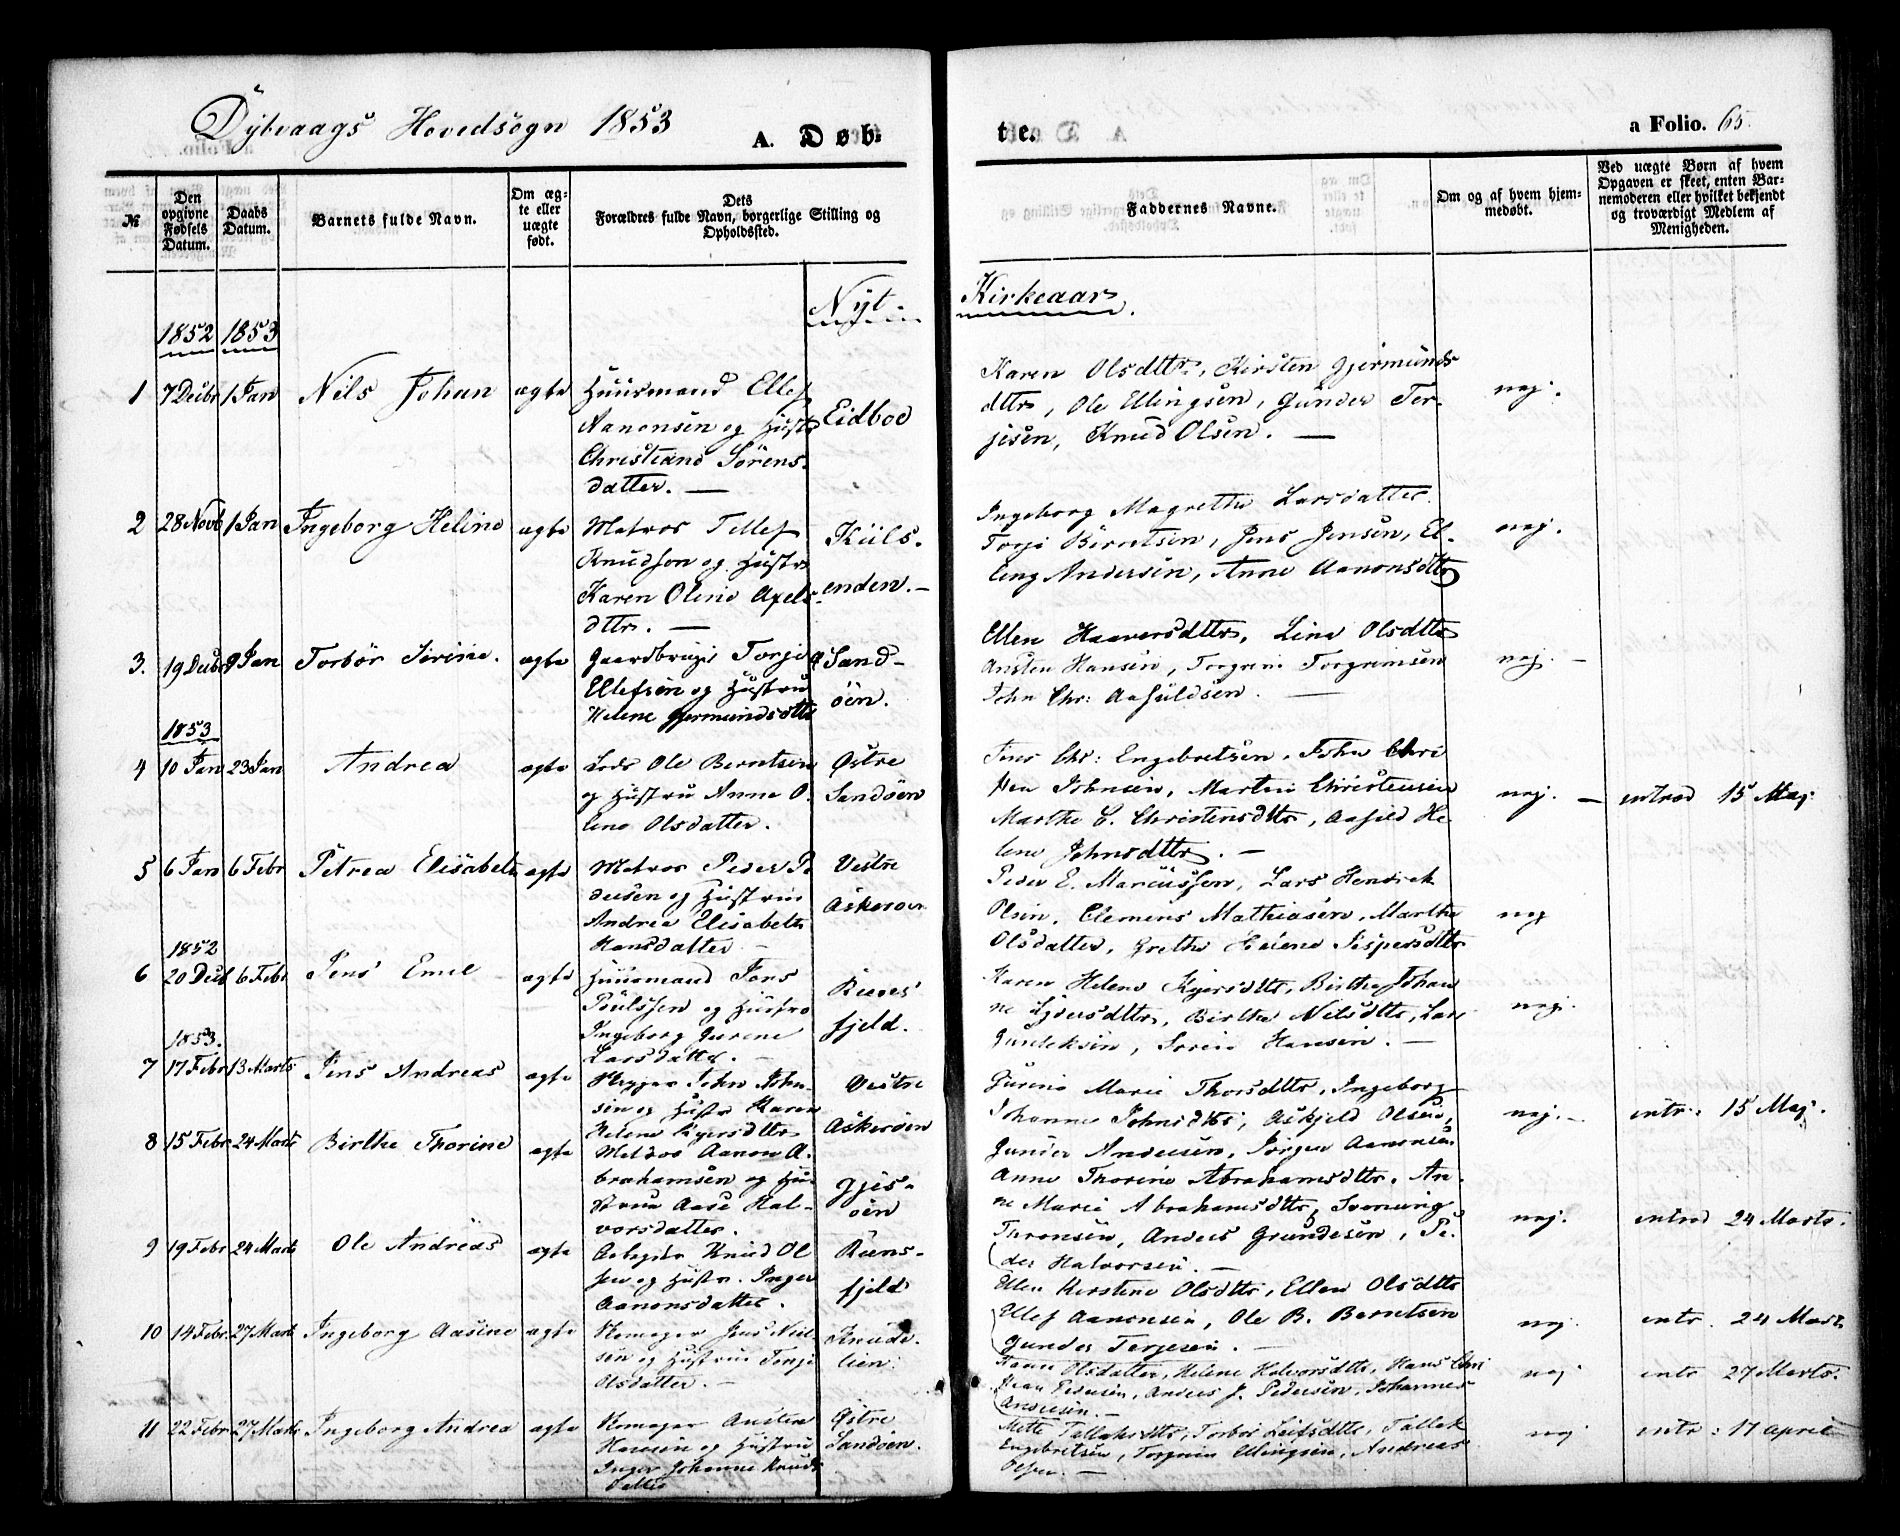 Dybvaags Hovedsogn 1853
A. Døb-
te.
a Folio. 65.
№
Den opgivne Fødsels Datum.
Daabs Datum.
Barnets fulde Navn.
Om æg-te eller uægte født.
Dets Forældres fulde Navn, borgerlige Stilling og Opholdssted.
Faddernes Navne.
Om og af hvem hjem-medøbt.
Ved uægte Børn af hvem Opgaven er skeet, enten Bar-nemoderen eller hvilket bekjendt og troværdigt Medlem af Menigheden.
Nyt-
Kirkeaar.
1852 1853
1 7 Decbr 1 Jan Nils Johan ægte
Huusmand Ellef
Aanonsen og Hustr
Christiane Sørens-
datter. —
Eidboe
Karen Olsdttr, Kirsten Gjermunds
dttr, Ole Ellingsen, Gunder Ter-
jesen, Knud Olsen. —
nej.
2 28 Novb 1 Jan Ingeborg Heline ægte
Matros Tellef
Knudsen og Hustr
Karen Oline Axels-
dttr. —
Kiils-
enden. —
Ingeborg Magrethe Larsdatter
Torje Berntsen, Jens Jensen, El-
ling Andersen, Anne Aanonsdttr
nej.
3. 19 Decbr 9 Jan Torbør Sirine. ægte
Gaardbruger Torje
Ellefsen og Hustru
Helene Gjermundsdttr
Sand-
øen.
Ellen Haaversdttr, Line Olsdttr
Austen Hansen, Torgrim Torgrimsen
John Chr: Aasuldsen. —
nej. —
1853
4 10 Jan 23 Jan Andrea ægte
Lods Ole Berntsen
og Hustru Anne O-
line Olsdatter.
Østre
Sandøen
Jens Chr: Engebretsen, John Chri
sten Johnsen, Marten Christensen
Marthe C. Christensdttr, Aasild He-
lene Johnsdttr. —
nej. — introd 15 Maj.
5 6 Jan 6 Febr Petrea Elisabeth ægte
Matros Peder Pe
dersen og Hustru
Andrea Elisabeth
Hansdatter —
Vestre
Askerøen
Peder E. Marcussen, Lars Hendrik
Olsen, Clemens Mathiasen, Marthe
Olsdatter, Grethe Helene Jespersdttr
nej
1852
6 20 Decb 6 Febr Jens Emil ægte
Huusmand Jens
Poulssen og Hustro
Ingeborg Gurine
Larsdatter. —
fjeld.
Karen Helene Kjersdttr, Birthe Johan
ne Gjersdttr, Birthe Nilsdttr, Lars
Gunleksen, Søren Hansen. —
nej.
1853.
7 17 Febr 13 Marts Jens Andreas ægte
John John-
sen og Hustr Karen
Helene Kjersdttr
Vestre
Askerøen
Gurine Marie Thorsdttr, Ingeborg
Johanne Johnsdttr, Askjeld Olsen,
Gunder Andersen, Jørgen Aanonsen
nej. — intr: 15 Maj.
8 15 Febr 24 Marts Birthe Thorine ægte
Matros Aanon A-
brahamsen og Hu
strue Aase Hal-
vorsdatter.
Gjes-
øen
Anne Thorine Abrahamsdttr, An-
ne Marie Abrahamsdttr, Svenning
Thronsen, Anders Grundesen, Pe-
der Halvorsen. —
nej. introd 24 Marts.
9 19 Febr 24 Marts Ole Andreas ægte
Arbejder Knud Ol
sen og Hustr. Inger
Aanonsdatter.
fjeld
Ellen Kirstine Olsdttr, Ellen Olsdttr
Ellef Aanonsen, Ole B. Berntsen
Gunder Terjesen. —
nej intr. 24 Marts
10 14 Febr. 27 Marts Ingeborg Aasine ægte
Jens Niel-
sen og Hustrue Tonje
Olsdatter. —
Knude-
lien.
Olsdatter, Helene Halvorsdttr, Hans Chri
stian Pedersen, Anders J. Pedersen, Johannes
Andersen. —
nej intr 27 Marts.
11 22 Febr 27 Marts Ingeborg Andrea ægte
Austen
Hansen og Hustru
Inger Johanne Knuds
datter
Østre
Sandøen.
Mette Tallaksdttr, Torbør Leifsdttr, Tallak
Engebretsen, Torgrim Ellingsen, Andreas
Olsen. —
nej intr: 17 April